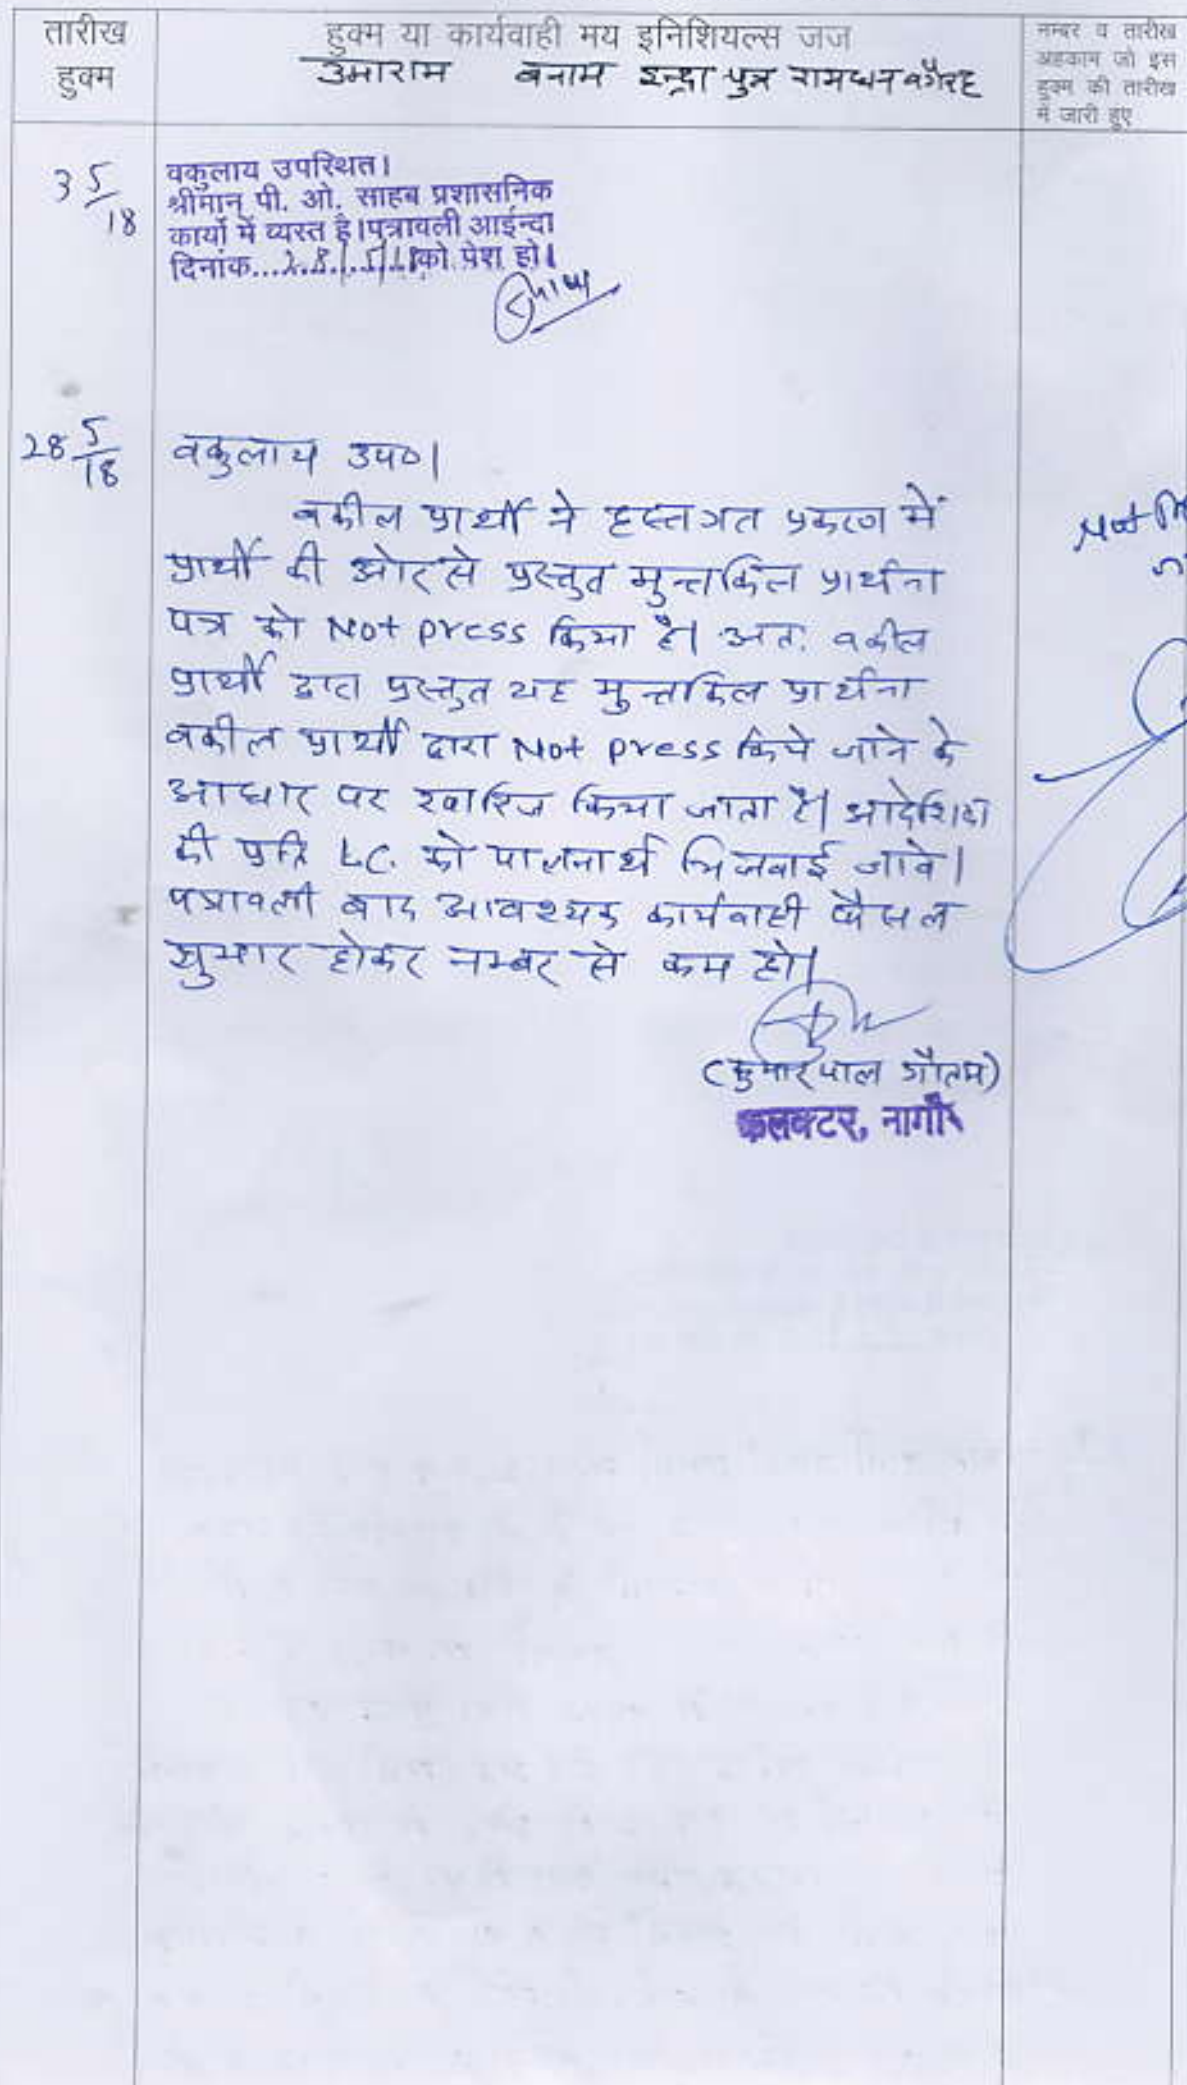 तारीख
हुक्म
हुक्म या कार्यवाही मय इनिशियल्स जज
उमाराम बनाम इन्द्रा पुत्र रामधन वगैरह
नम्बर व तारीख
अहकाम जो इस
हुक्म की तारीख
में जारी हुए
3 5/18
वकुलाय उपस्थित।
श्रीमान् पी. ओ. साहब प्रशासनिक
कार्यो में व्यस्त है।पत्रावली आईन्दा
दिनांक...28/5/18 को पेश हो।
28 5/18
वकुलाय उप०।
वकील प्रार्थी ने हस्तगत प्रकरण में
प्रार्थी की ओर से प्रस्तुत मुन्तकिल प्रार्थना
पत्र को Not press किया है। अतः वकील
प्रार्थी द्वारा प्रस्तुत यह मुन्तकिल प्रार्थना
वकील प्रार्थी द्वारा Not press किये जाने के
आधार पर खारिज किया जाता है। आदेशिका
की प्रति L.C. को पालनार्थ भिजवाई जावे।
पत्रावली बाद आवश्यक कार्यवाही फैसल
शुमार होकर नम्बर से कम हो।
(कुमारपाल गौतम)
कलक्टर, नागौर
Not